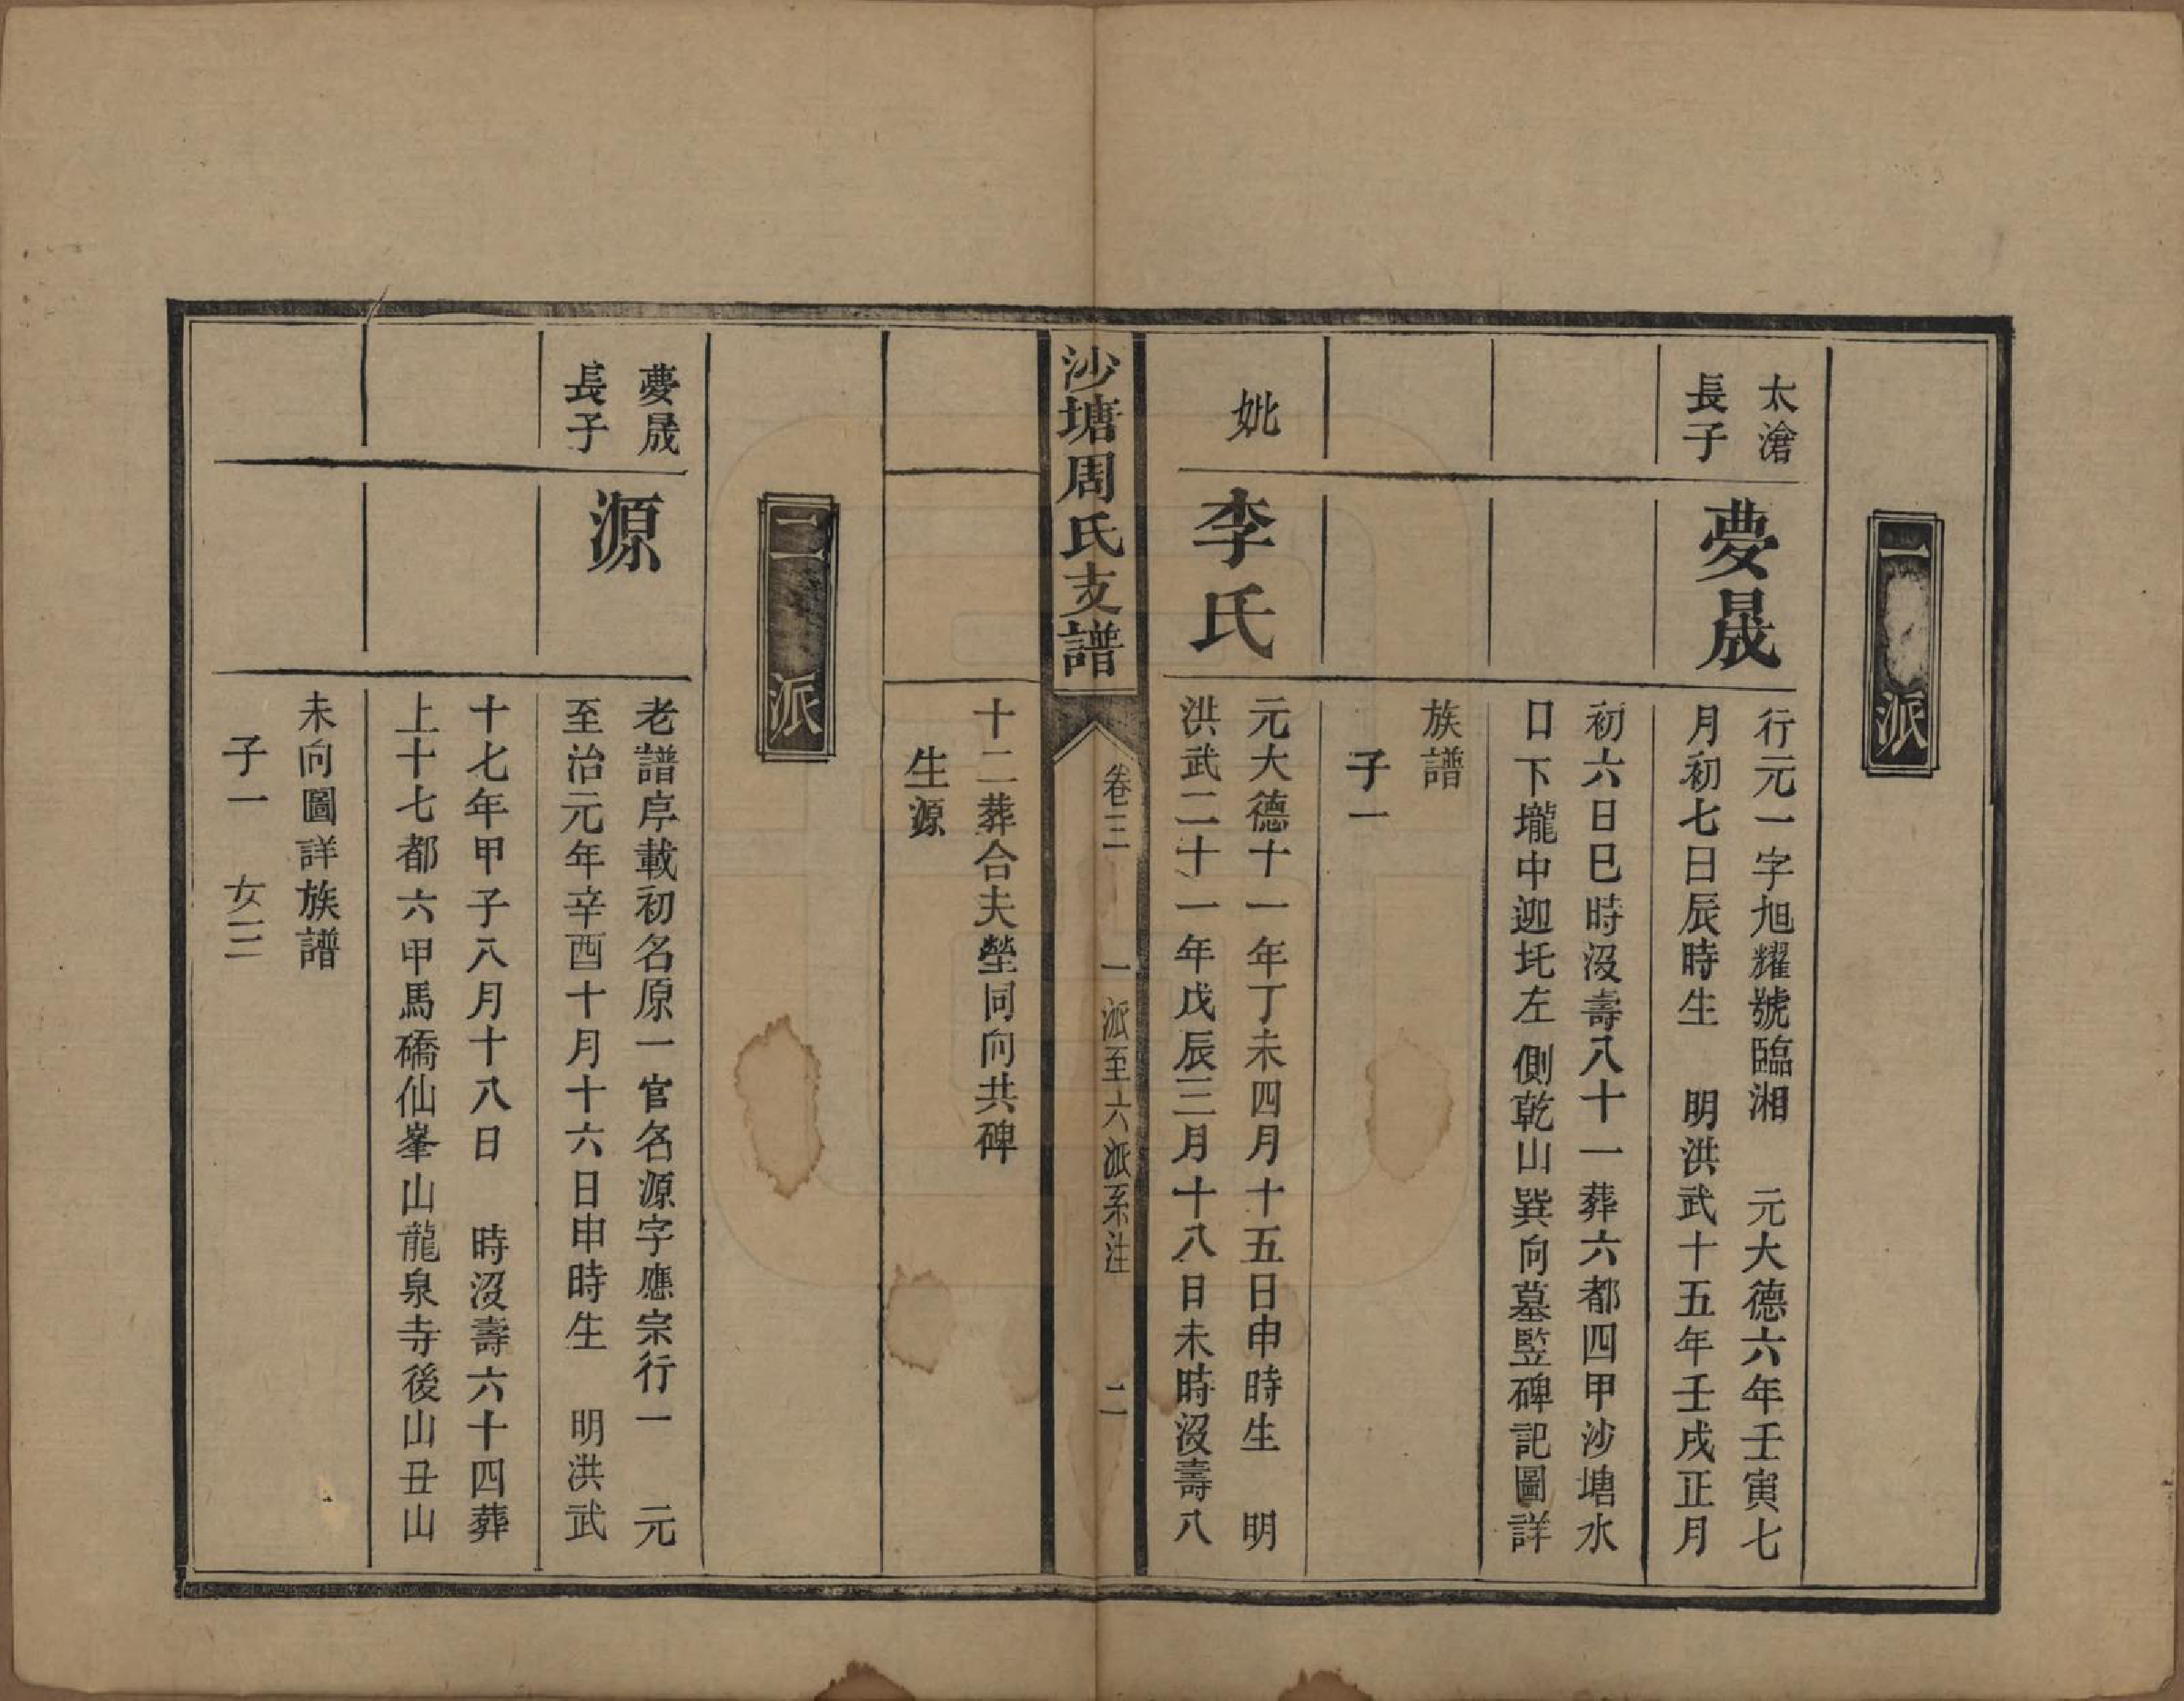 一派
太滄
長子
夢晟
行元一字旭耀號臨湘　元大德六年壬寅七
月初七日辰時生　明洪武十五年壬戌正月
初六日巳時沒壽八十一葬六都四甲沙塘水
口下壠中迎圫左側乾山巽向墓竪碑記圖詳
族譜
子一
妣
李氏
元大德十一年丁未四月十五日申時生　明
洪武二十一年戊辰三月十八日未時沒壽八
沙塘周氏支譜
卷三
一派至六派系注
二
十二葬合夫塋同向共碑
生源
二派
夢晟
長子
源
老譜序載初名原一官名源字應宗行一　元
至治元年辛酉十月十六日申時生　明洪武
十七年甲子八月十八日　時沒壽六十四葬
上十七都六甲馬礄仙峯山龍泉寺後山丑山
未向圖詳族譜
子一　女三